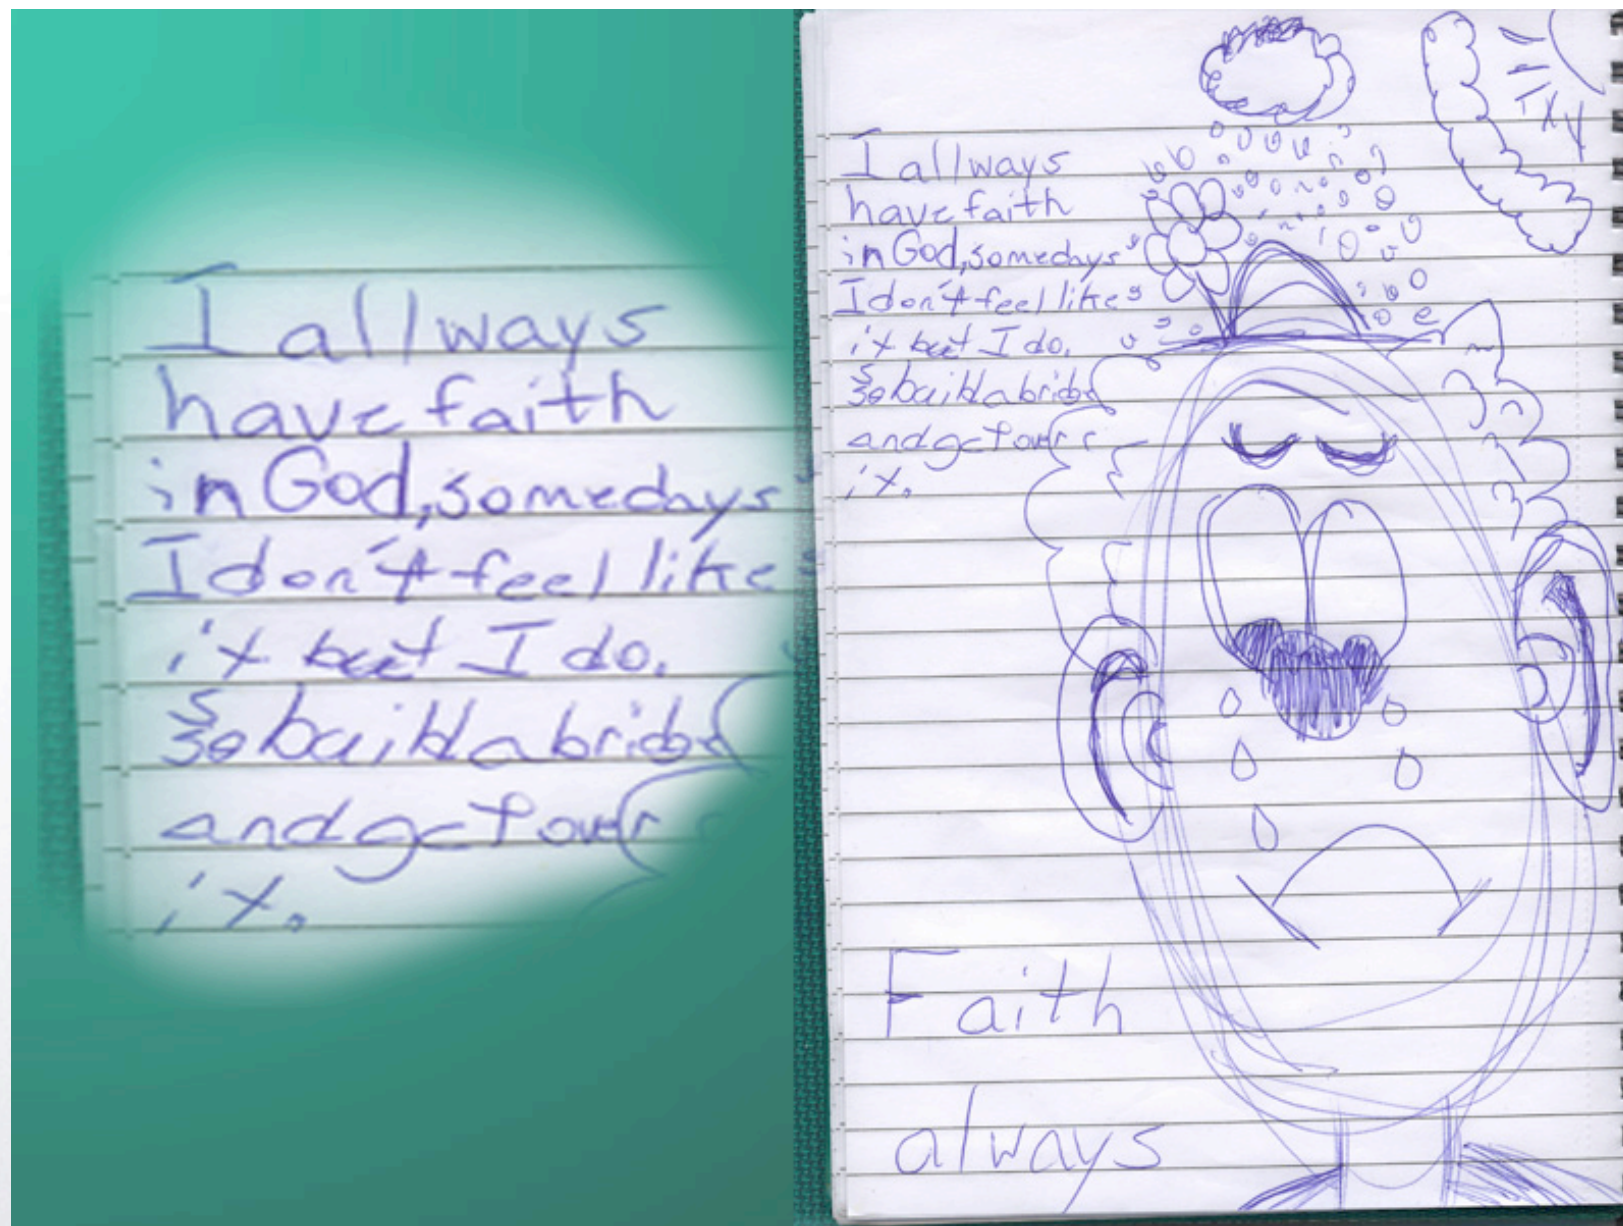 I allways
have faith
in God, somedays
I don't feel like
it but I do.
So build a bridge
and get over
it.
I allways
have faith
in God, somedays
I don't feel like
it but I do.
So build a bridge
and get over
it.
Faith
always